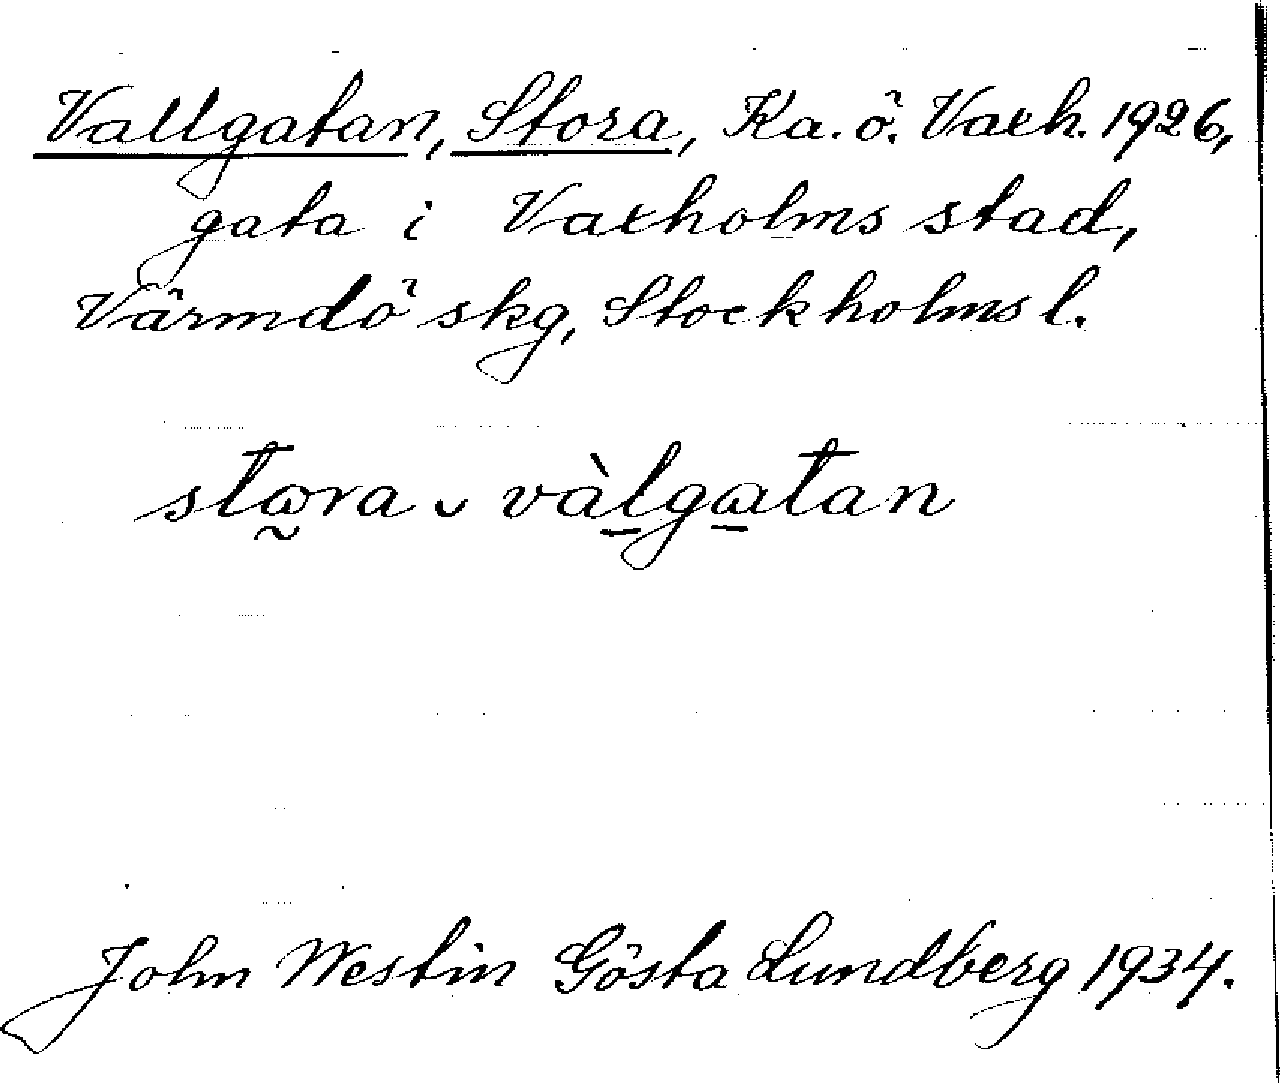 Vallgatan, Stora, Ka. ö. Vaxh. 1926,
gata i Vaxholms stad,
Värmdö skg, Stockholms l.
stω̰ra ᴗ vàl̠gω̠tan
John Westin Gösta Lundberg 1934.